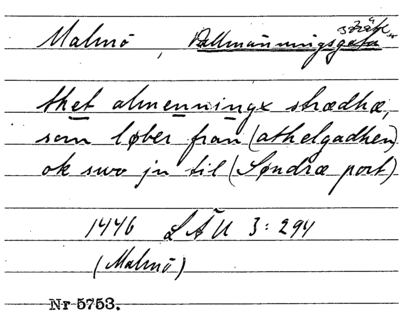 Malmö, Allmänningsgatan stræte
thet almenningx strædhæ,
som løber fran (athelgadhen)
ok swo jn til (Søndræ port)
1446 LÄU 3: 294
(Malmö)
Nr 5753.